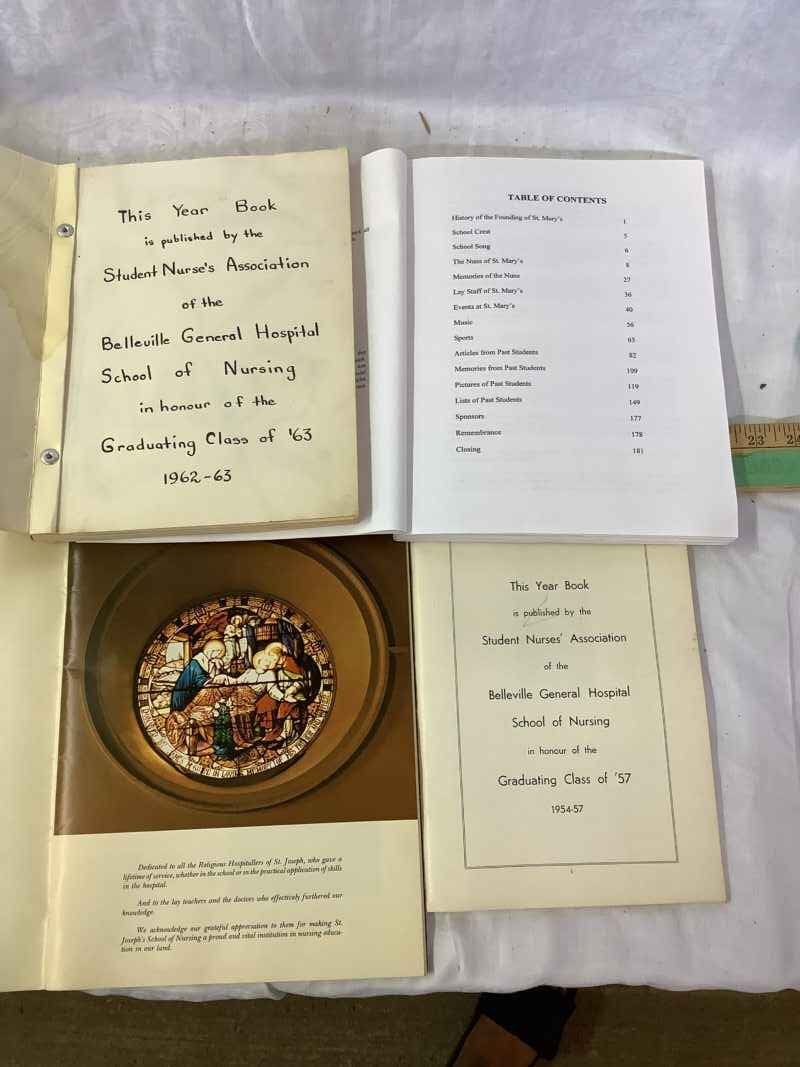 This Year Book
is published by the
Student Nurse's Association
of the
Belleville General Hospital
School of Nursing
in honour of the
Graduating Class of '63
1962-63
TABLE OF CONTENTS
History of the Founding of St. Mary's 1
School Crest 5
School Song 6
The Nuns of St. Mary's 8
Memories of the Nuns 27
Lay Staff of St. Mary's 36
Events at St. Mary's 40
Music 56
Sports 65
Articles from Past Students 82
Memories from Past Students 109
Pictures of Past Students 119
Lists of Past Students 149
Sponsors 177
Remembrance 178
Closing 181
23
Dedicated to all the Religious Hospitallers of St. Joseph, who gave a
lifetime of service, whether in the school or in the practical application of skills
in the hospital.
And to the lay teachers and the doctors who effectively furthered our
knowledge.
We acknowledge our grateful appreciation to them for making St.
Joseph's School of Nursing a proud and vital institution in nursing educa-
tion in our land.
This Year Book
is published by the
Student Nurses' Association
of the
Belleville General Hospital
School of Nursing
in honour of the
Graduating Class of '57
1954-57
1